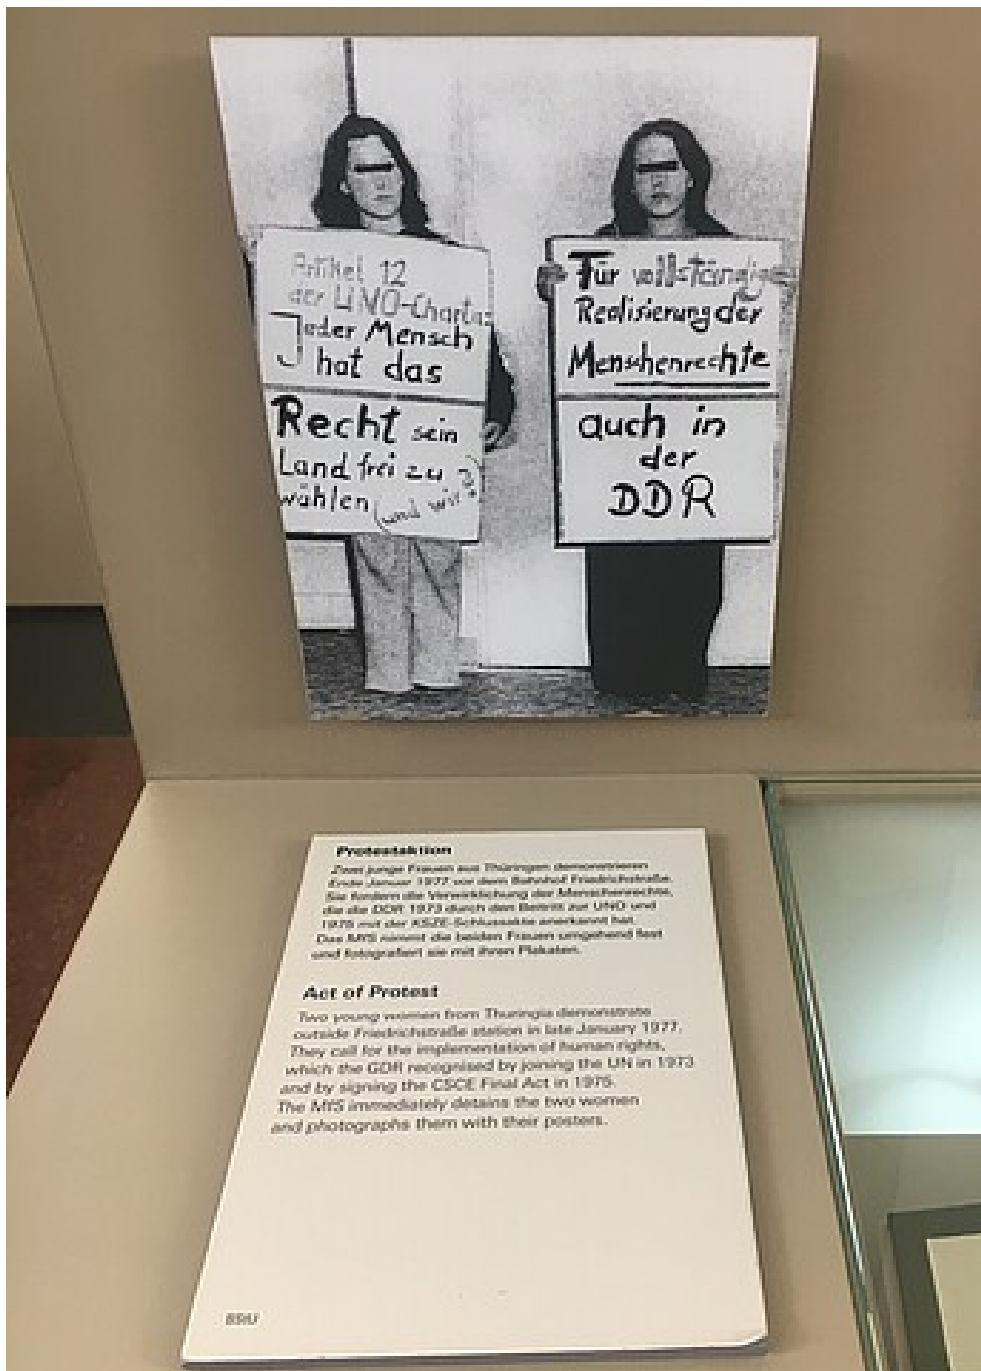 Artikel 12
der UNO-Charta:
Jeder Mensch
hat das
Recht sein
Land frei zu
wählen (und wir?)
Für vollständige
Realisierung der
Menschenrechte
auch in
der
DDR
Protestaktion
Zwei junge Frauen aus Thüringen demonstrieren
Ende Januar 1977 vor dem Bahnhof Friedrichstraße.
Sie fordern die Verwirklichung der Menschenrechte,
die die DDR 1973 durch den Beitritt zur UNO und
1975 mit der KSZE-Schlussakte anerkannt hat.
Das MfS nimmt die beiden Frauen umgehend fest
und fotografiert sie mit ihren Plakaten.
Act of Protest
Two young women from Thuringia demonstrate
outside Friedrichstraße station in late January 1977.
They call for the implementation of human rights,
which the GDR recognised by joining the UN in 1973
and by signing the CSCE Final Act in 1975.
The MfS immediately detains the two women
and photographs them with their posters.
BStU